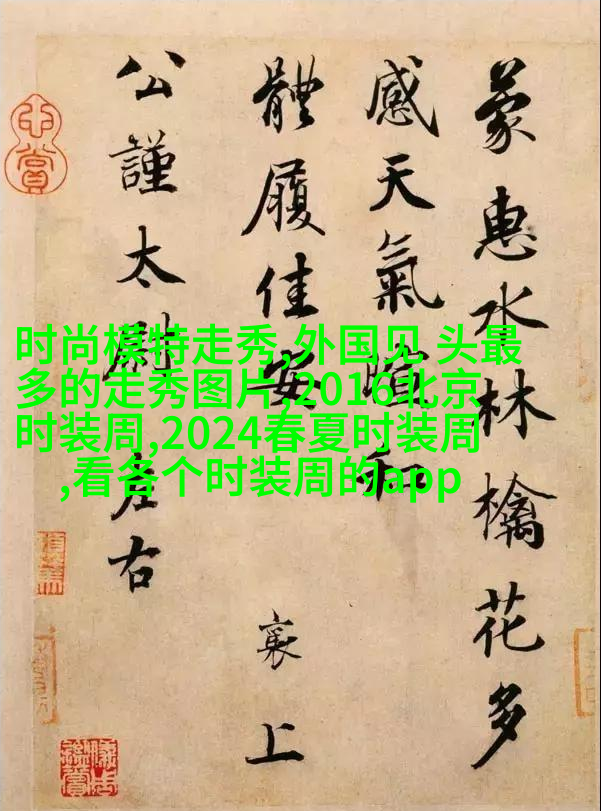 蒙惠水林檎花多
感天氣暄和
體履佳安
襄上
公謹太尉左右
时尚模特走秀,外国见 头最
多的走秀图片,2016北京
时装周,2024春夏时装周
,看各个时装周的app